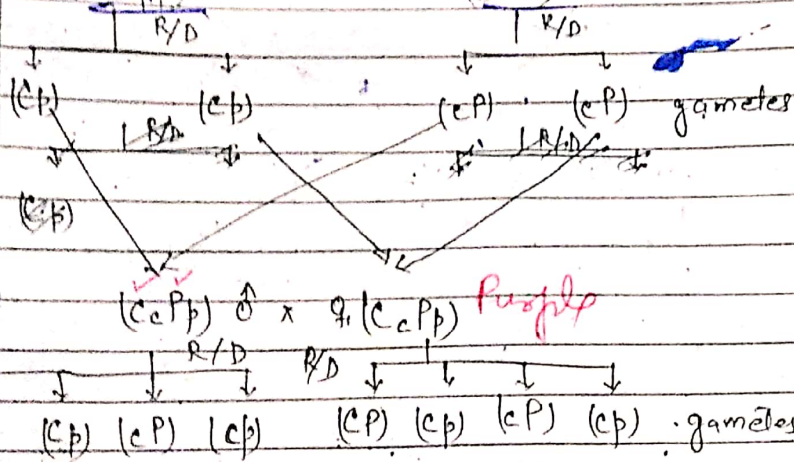 R/D R/D
(Cp) (Cp) (cP) (cP) gametes
R/D R/D
(Cp)
(CcPp) ♂ x ♀ (CcPp) Purple
R/D R/D
(Cp) (cP) (cp) (CP) (Cp) (cP) (cp) gametes